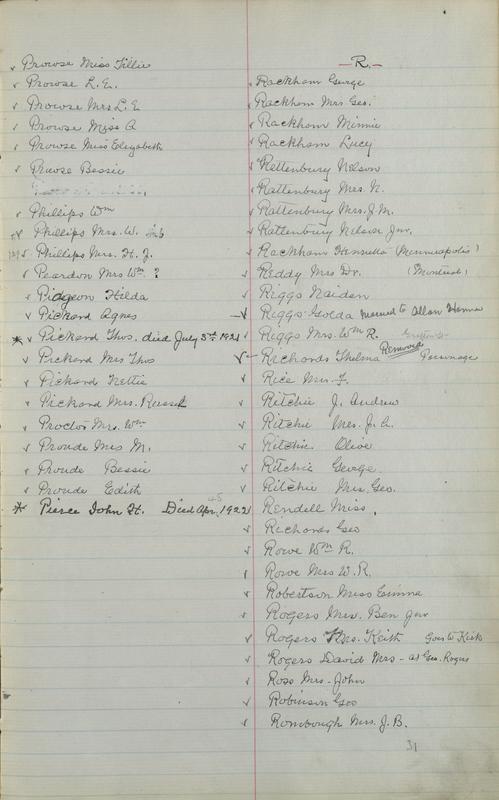 ✓ Prowse Miss Tillie
✓ Prowse L.E.
✓ Prowse Mrs L.E
✓ Prowse Miss A
✓ Prowse Miss Elizabeth
✓ Prowse Bessie
✓ Phillips Wm
✓ Phillips Mrs. W.
✓ Phillips Mrs. H. J.
✓ Peardon Mrs Wm ?
✓ Pidgeon Hilda
✓ Pickard Agnes
* ✓ Pickard Thos. died July 5th 1921
✓ Pickard Mrs Thos
✓ Pickard Nettie
✓ Pickard Mrs. Russel
✓ Proctor Mrs. Wm
✓ Proude Miss M.
✓ Proude Bessie
✓ Proude Edith
* Pierce John H. Died Apr. 1922
— R. —
✓ Rackham George
✓ Rackham Mrs Geo.
✓ Rackham Minnie
✓ Rackham Lucy
✓ Rattenbury Nelson
✓ Rattenbury Mrs. N.
✓ Rattenbury Mrs. J.M.
✓ Rattenbury Nelson Jnr.
✓ Rackham Henrietta (Minneapolis)
✓ Reddy Mrs Dr. (Montreal)
✓ Riggs Maiden
✓ Riggs Golda married to Allan
✓ Riggs Mrs. Wm R.
✓ Richards Thelma Removed Parsonage
✓ Rice Mrs. F.
✓ Ritchie J. Andrew
✓ Ritchie Mrs. J. A.
✓ Ritchie Olive
✓ Ritchie George
✓ Ritchie Mrs. Geo.
✓ Rendell Miss
✓ Richards Geo
✓ Rowe Wm R.
✓ Rowe Mrs W.R.
✓ Robertson Miss Emma
✓ Rogers Mrs. Ben Jnr
✓ Rogers Keith Goes to Kirk
✓ Rogers David Mrs - at Geo. Rogers
✓ Ross Mrs - John
✓ Robinson Geo
✓ Rombough Mrs. J.B.
31